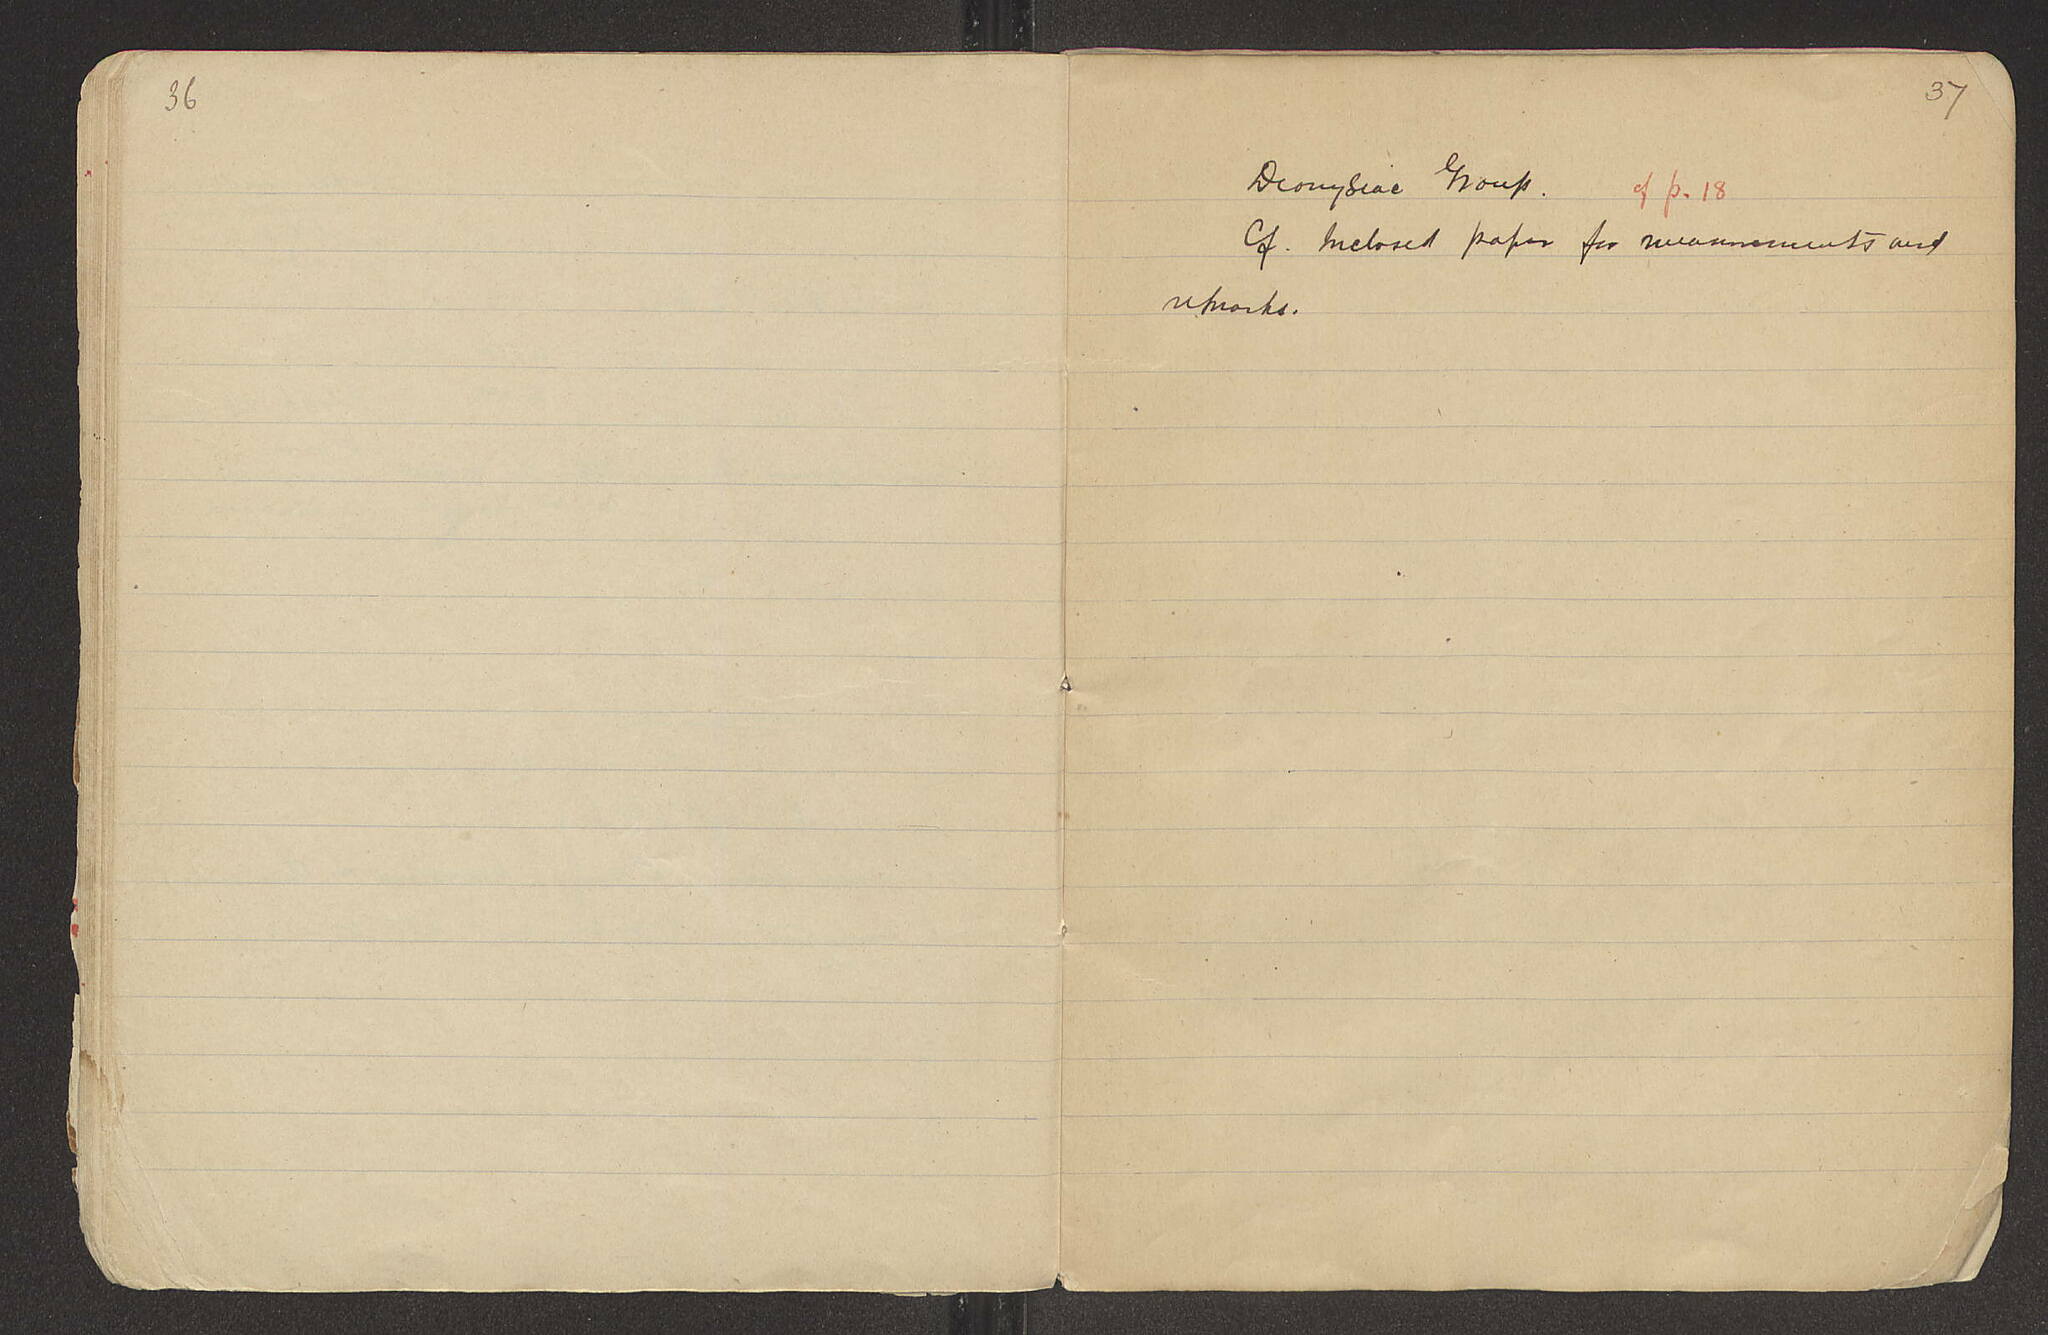 36
37
Dionysiac Group. cf p. 18
Cf. Inclosed paper for measurements and
remarks.